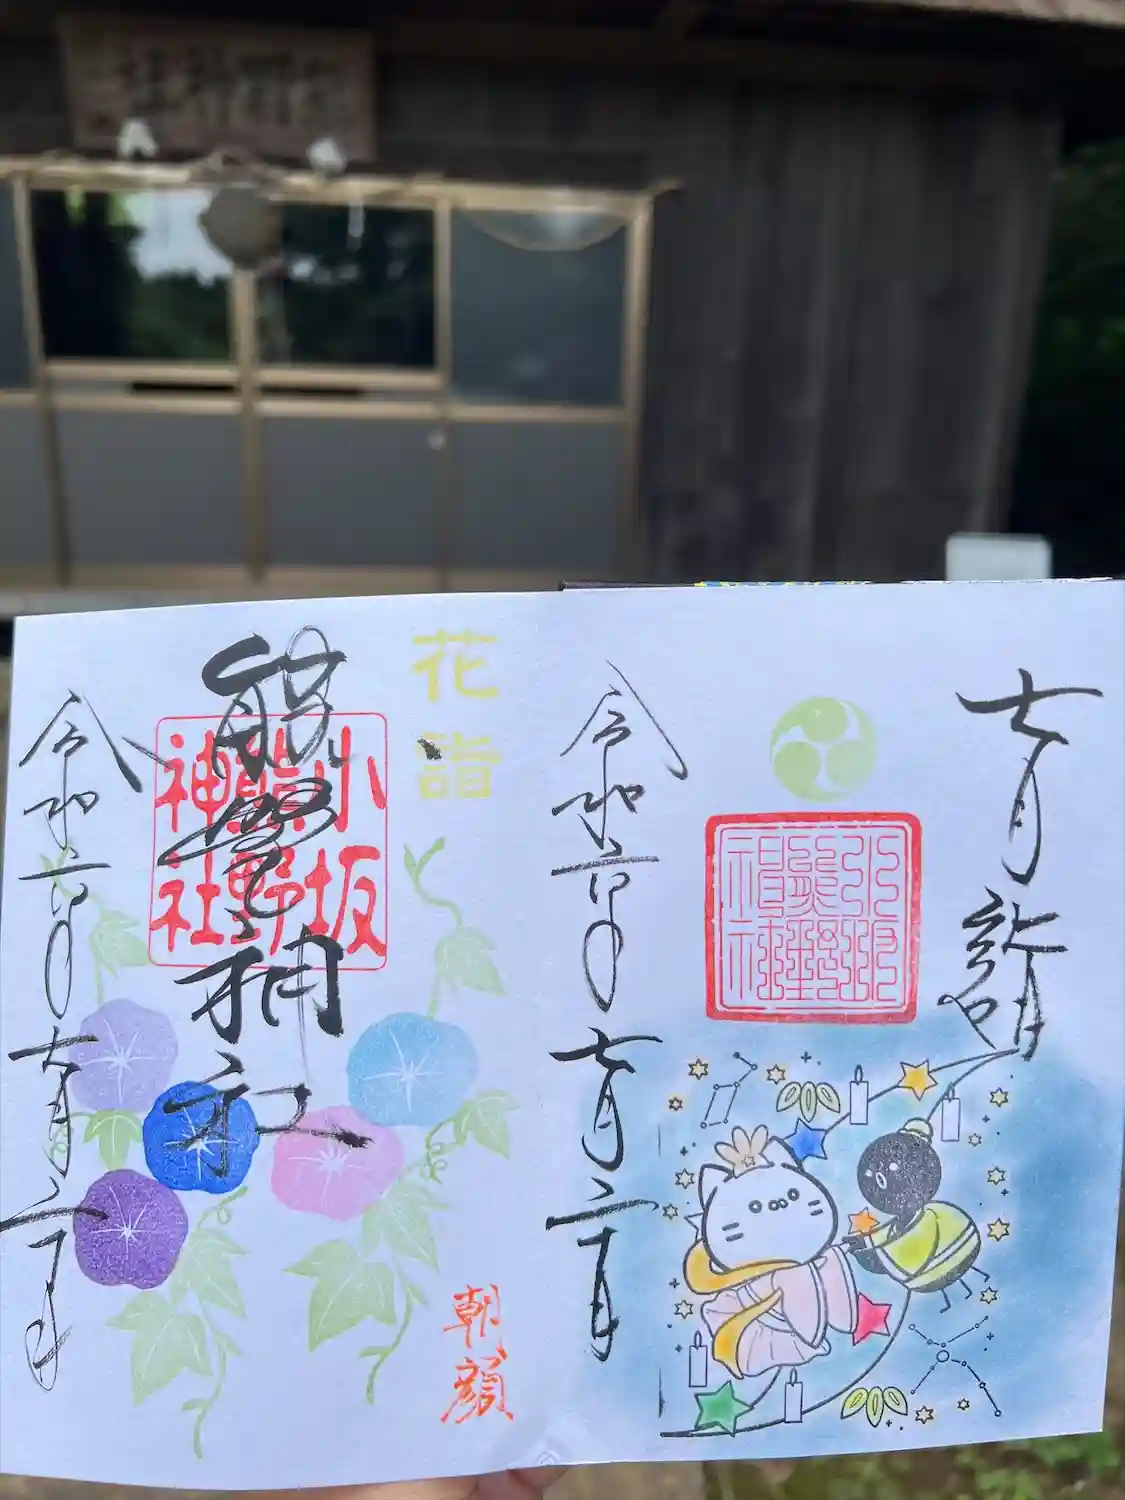 七月詣
小坂
熊野
神社
令和六年七月六日
花詣
熊野神社
小坂
熊野
神社
朝顔
令和六年七月六日